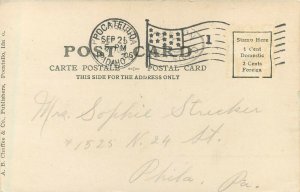 POCATELLO
SEP 25
PM
IDAHO
1
POST CARD
CARTE POSTALE POSTAL CARD
THIS SIDE FOR THE ADDRESS ONLY
Stamp Here
1 Cent
Domestic
2 Cents
Foreign
A. B. Chaffee & Co., Publishers, Pocatello, Ida.
Mrs. Sophie Strecker
#1525 N. 29 St.
Phila. Pa.